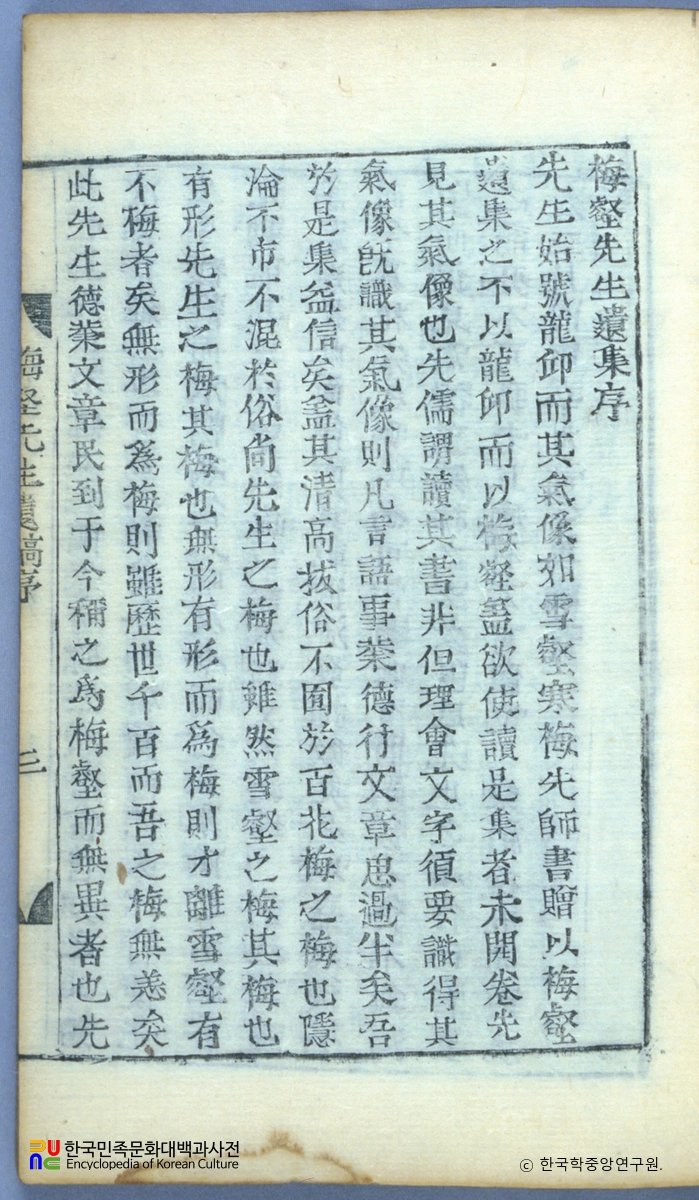 梅壑先生遺集序
先生始號龍卬而其氣像如雪壑寒梅先師書贈以梅壑
遺集之不以龍卬而以梅壑盖欲使讀是集者未開卷先
見其氣像也先儒謂讀其書非但理會文字須要識得其
氣像旣識其氣像則凡言語事業德行文章思過半矣吾
於是集益信矣盖其清高拔俗不囿於百花梅之梅也隱
淪不市不混於俗尙先生之梅也雖然雪壑之梅其梅也
有形先生之梅其梅也無形有形而爲梅則才離雪壑有
不梅者矣無形而爲梅則雖歷世千百而吾之梅無恙矣
此先生德業文章民到于今稱之爲梅壑而無異者也先
梅壑先生遺稿序
三
한국민족문화대백과사전
Encyclopedia of Korean Culture
ⓒ 한국학중앙연구원.